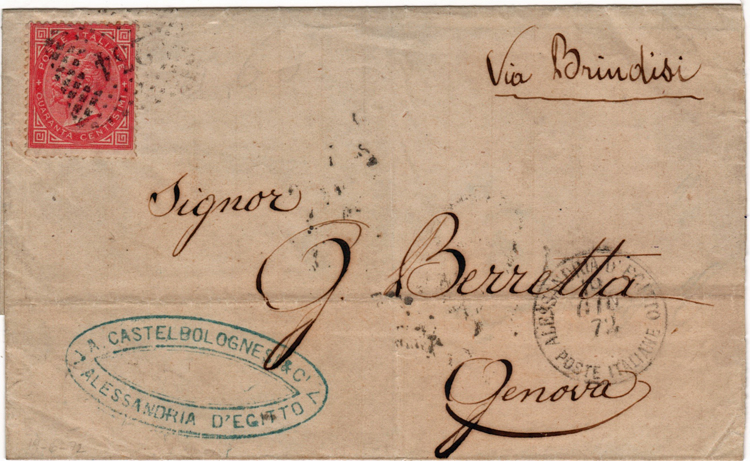 POSTE ITALIANE
QUARANTA CENTESIMI
Via Brindisi
Signor
G. Berretta
Genova
A. CASTELBOLOGNESI & C.
ALESSANDRIA D'EGITTO
ALESSANDRIA D'EGITTO
GIU
72
POSTE ITALIANE